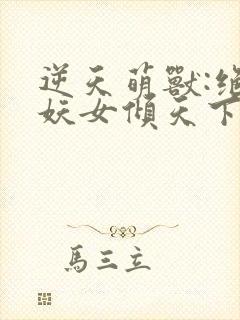 逆天萌獸:絕
妖女傾天下
馬三立